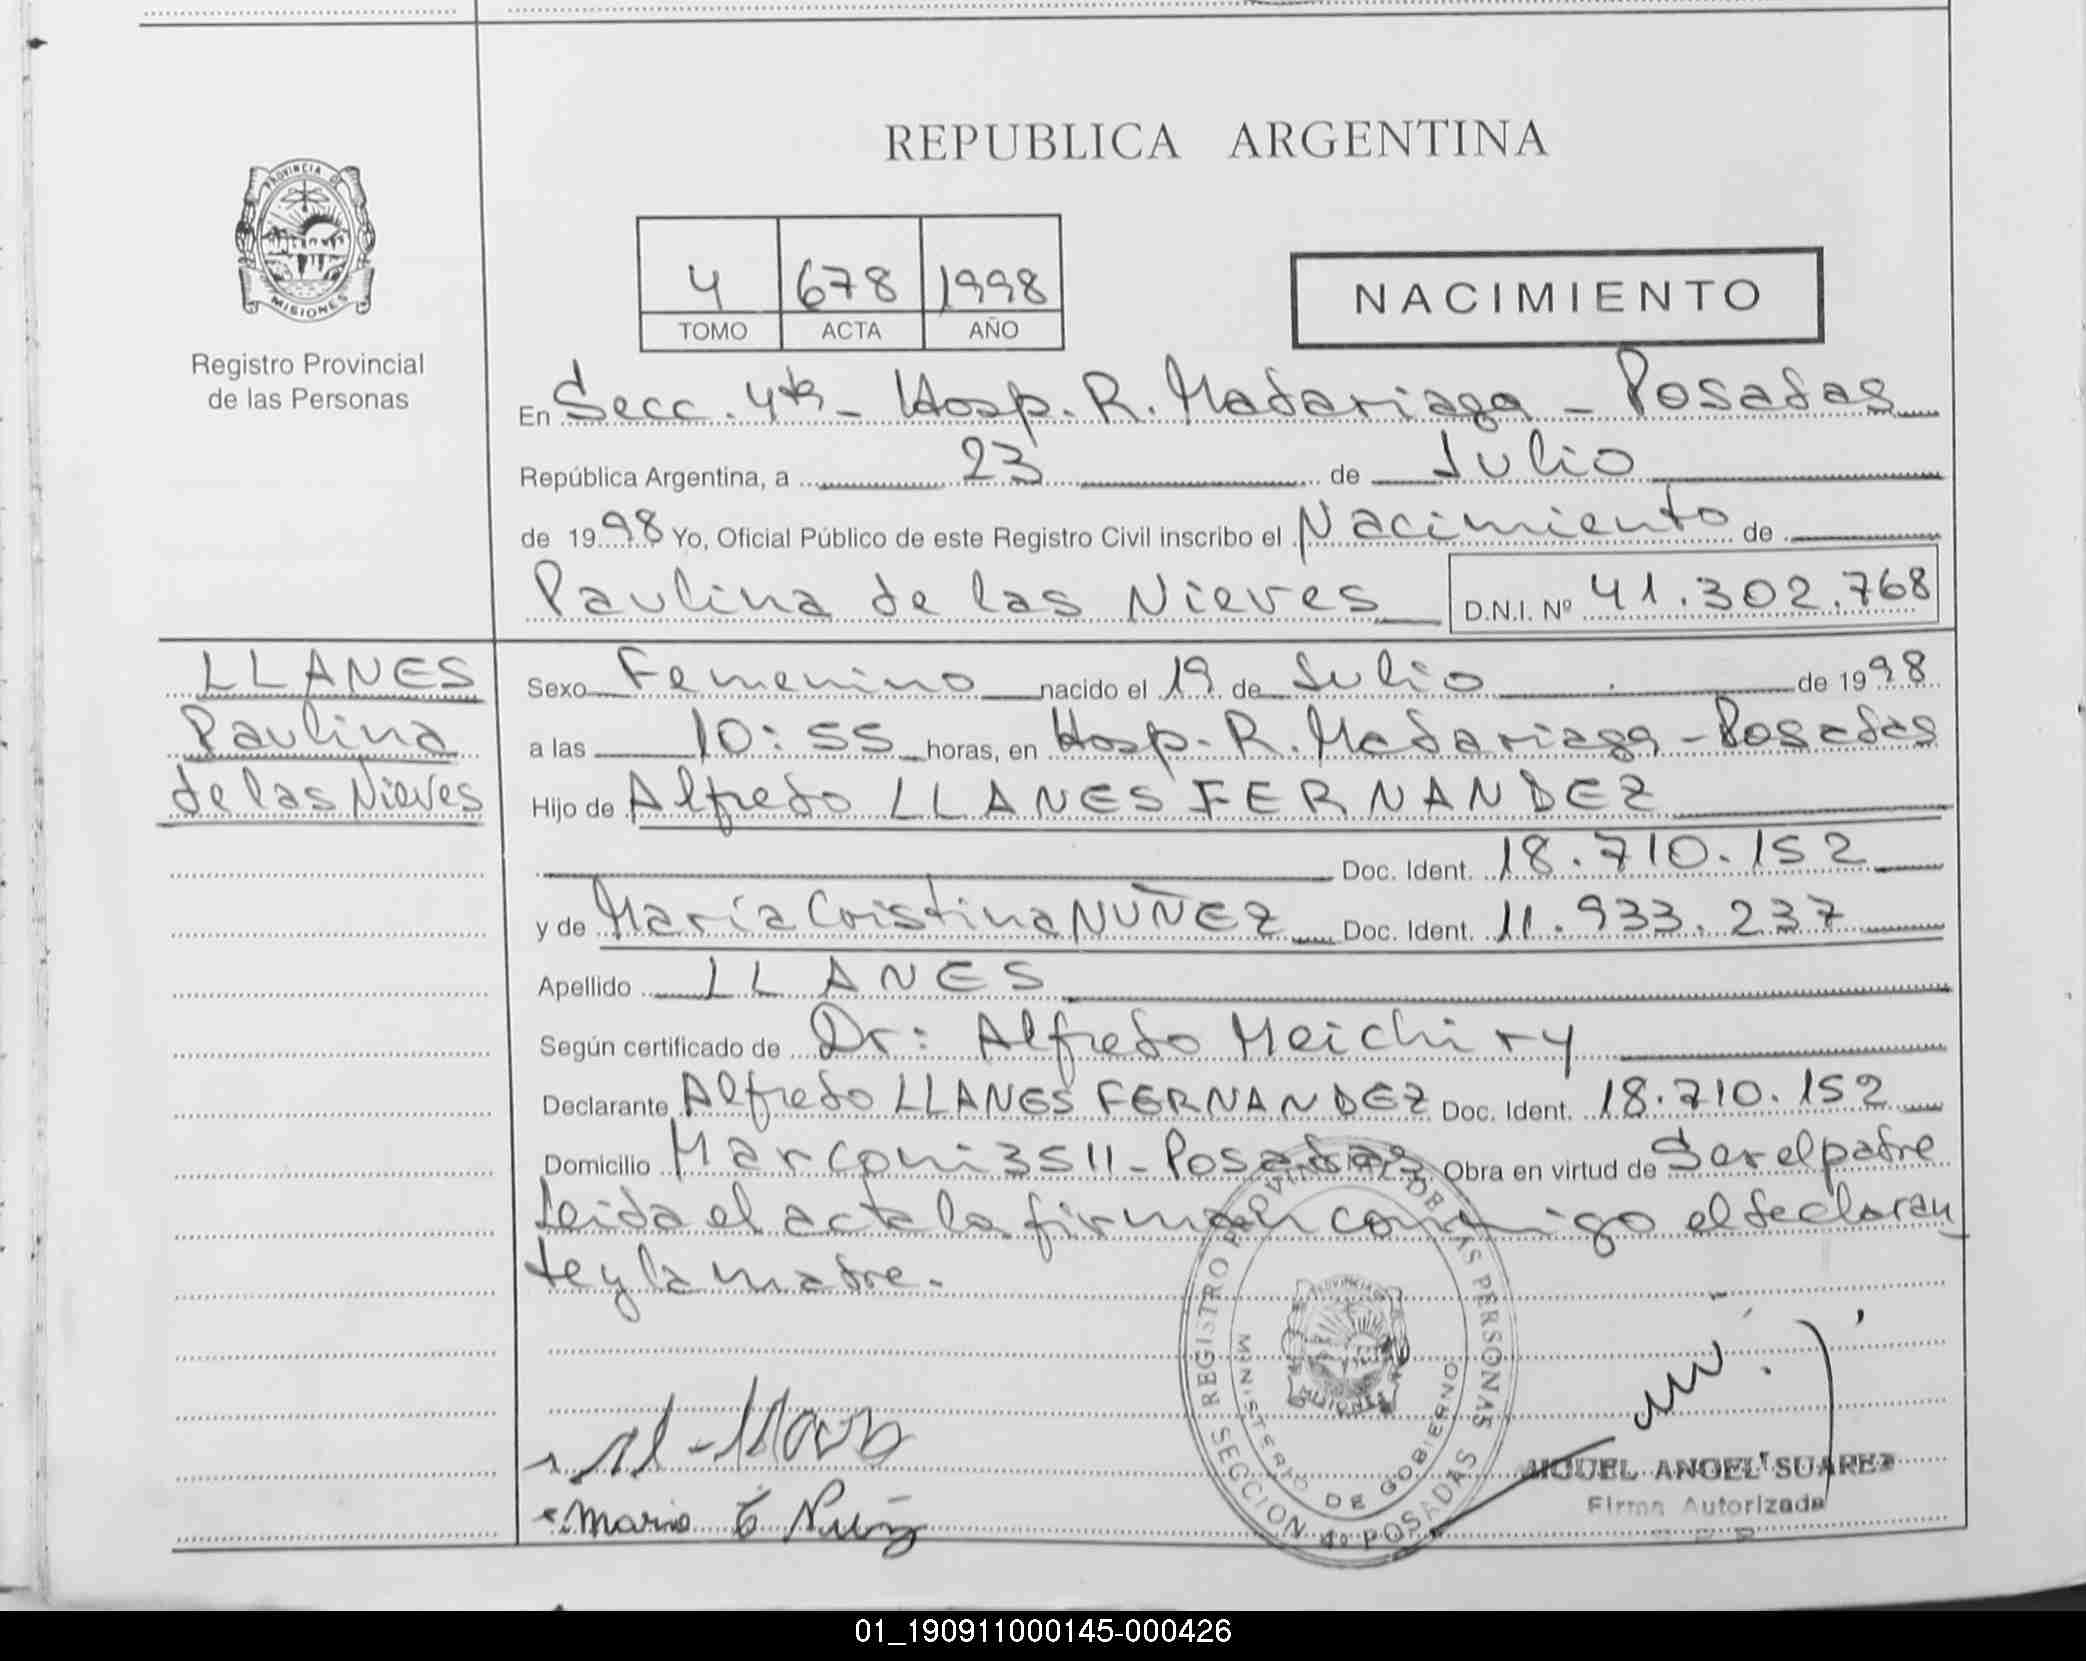 REPUBLICA ARGENTINA
PROVINCIA DE
MISIONES
Registro Provincial
de las Personas
4 678 1998
TOMO ACTA AÑO
NACIMIENTO
En Secc. 4ta - Hosp. R. Madariaga - Posadas
República Argentina, a 23 de Julio
de 1998 Yo, Oficial Público de este Registro Civil inscribo el Nacimiento de
Paulina de las Nieves D.N.I. Nº 41.302.768
LLANES
Paulina
de las Nieves
Sexo Femenino nacido el 19 de Julio de 1998
a las 10:55 horas, en Hosp. R. Madariaga - Posadas
Hijo de Alfredo LLANES FERNANDEZ
Doc. Ident. 18.710.152
y de María Cristina NUÑEZ Doc. Ident. 11.933.237
Apellido LLANES
Según certificado de Dr: Alfredo Meichtry
Declarante Alfredo LLANES FERNANDEZ Doc. Ident. 18.710.152
Domicilio Marconi 3511 - Posadas Obra en virtud de Ser el padre
Leida el acta la firman conmigo el declaran
te y la madre.
REGISTRO PROVINCIAL DE LAS PERSONAS
MINISTERIO DE GOBIERNO
SECCION 4º POSADAS
Maria C Nuñez
MIGUEL ANGEL SUAREZ
Firma Autorizada
01_190911000145-000426